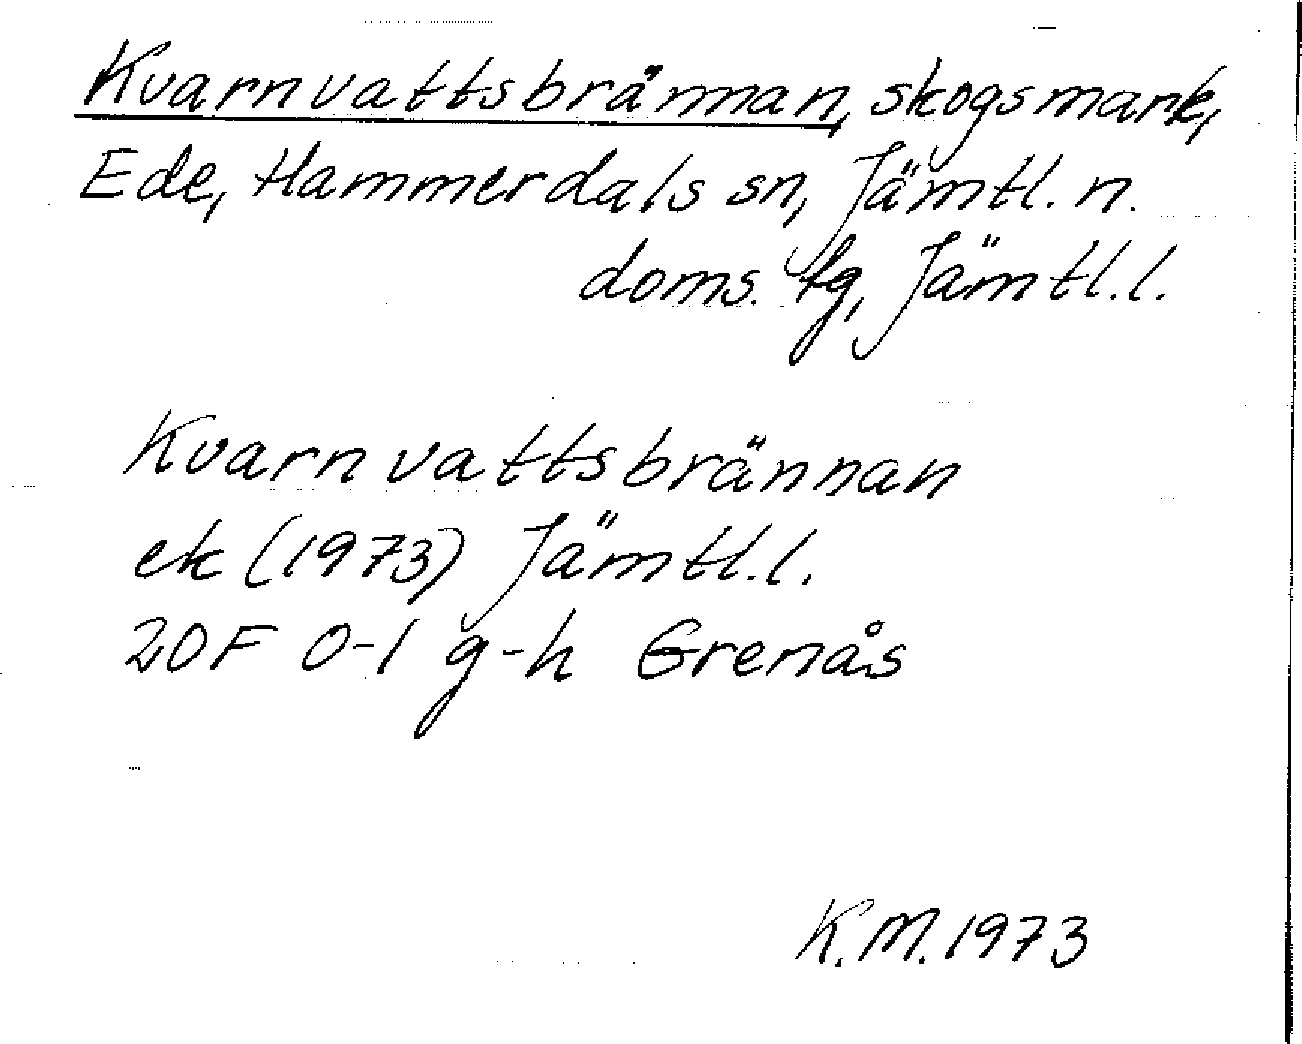 Kvarnvattsbrännan, skogsmark,
Ede, Hammerdals sn, Jämtl. n.
doms. fg, Jämtl.l.
Kvarnvattsbrännan
ek (1973) Jämtl.l.
20F 0-1 g-h Grenås
K.M. 1973